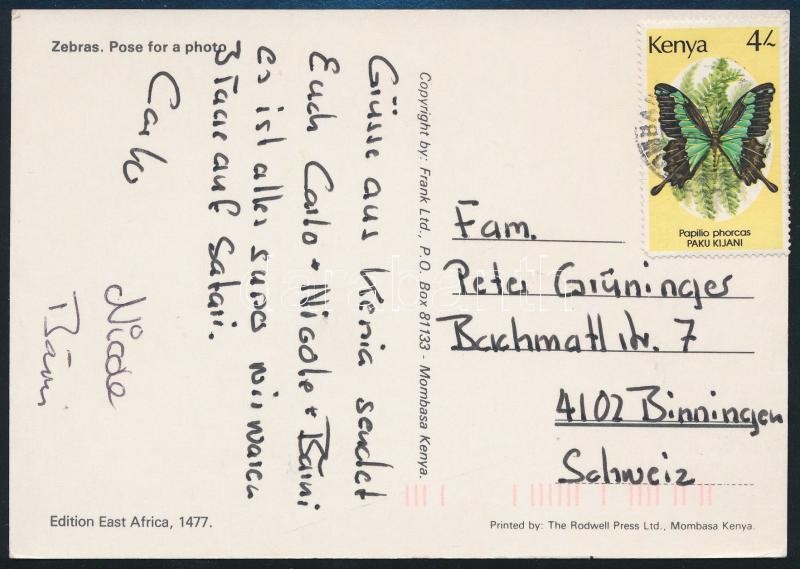 Zebras. Pose for a photo
Grüsse aus Kenia sendet
Euch Carlo + Nicole + Bärni
es ist alles super wir waren
3 Tage auf Safari.
Carlo
Nicole
Bärni
Edition East Africa, 1477.
Copyright by: Frank Ltd., P.O. Box 81133 - Mombasa Kenya.
Kenya 4/-
Papilio phorcas
PAKU KIJANI
Fam.
Peter Grüninger
Bachmattstr. 7
4102 Binningen
Schweiz
Printed by: The Rodwell Press Ltd., Mombasa Kenya.
darabanth